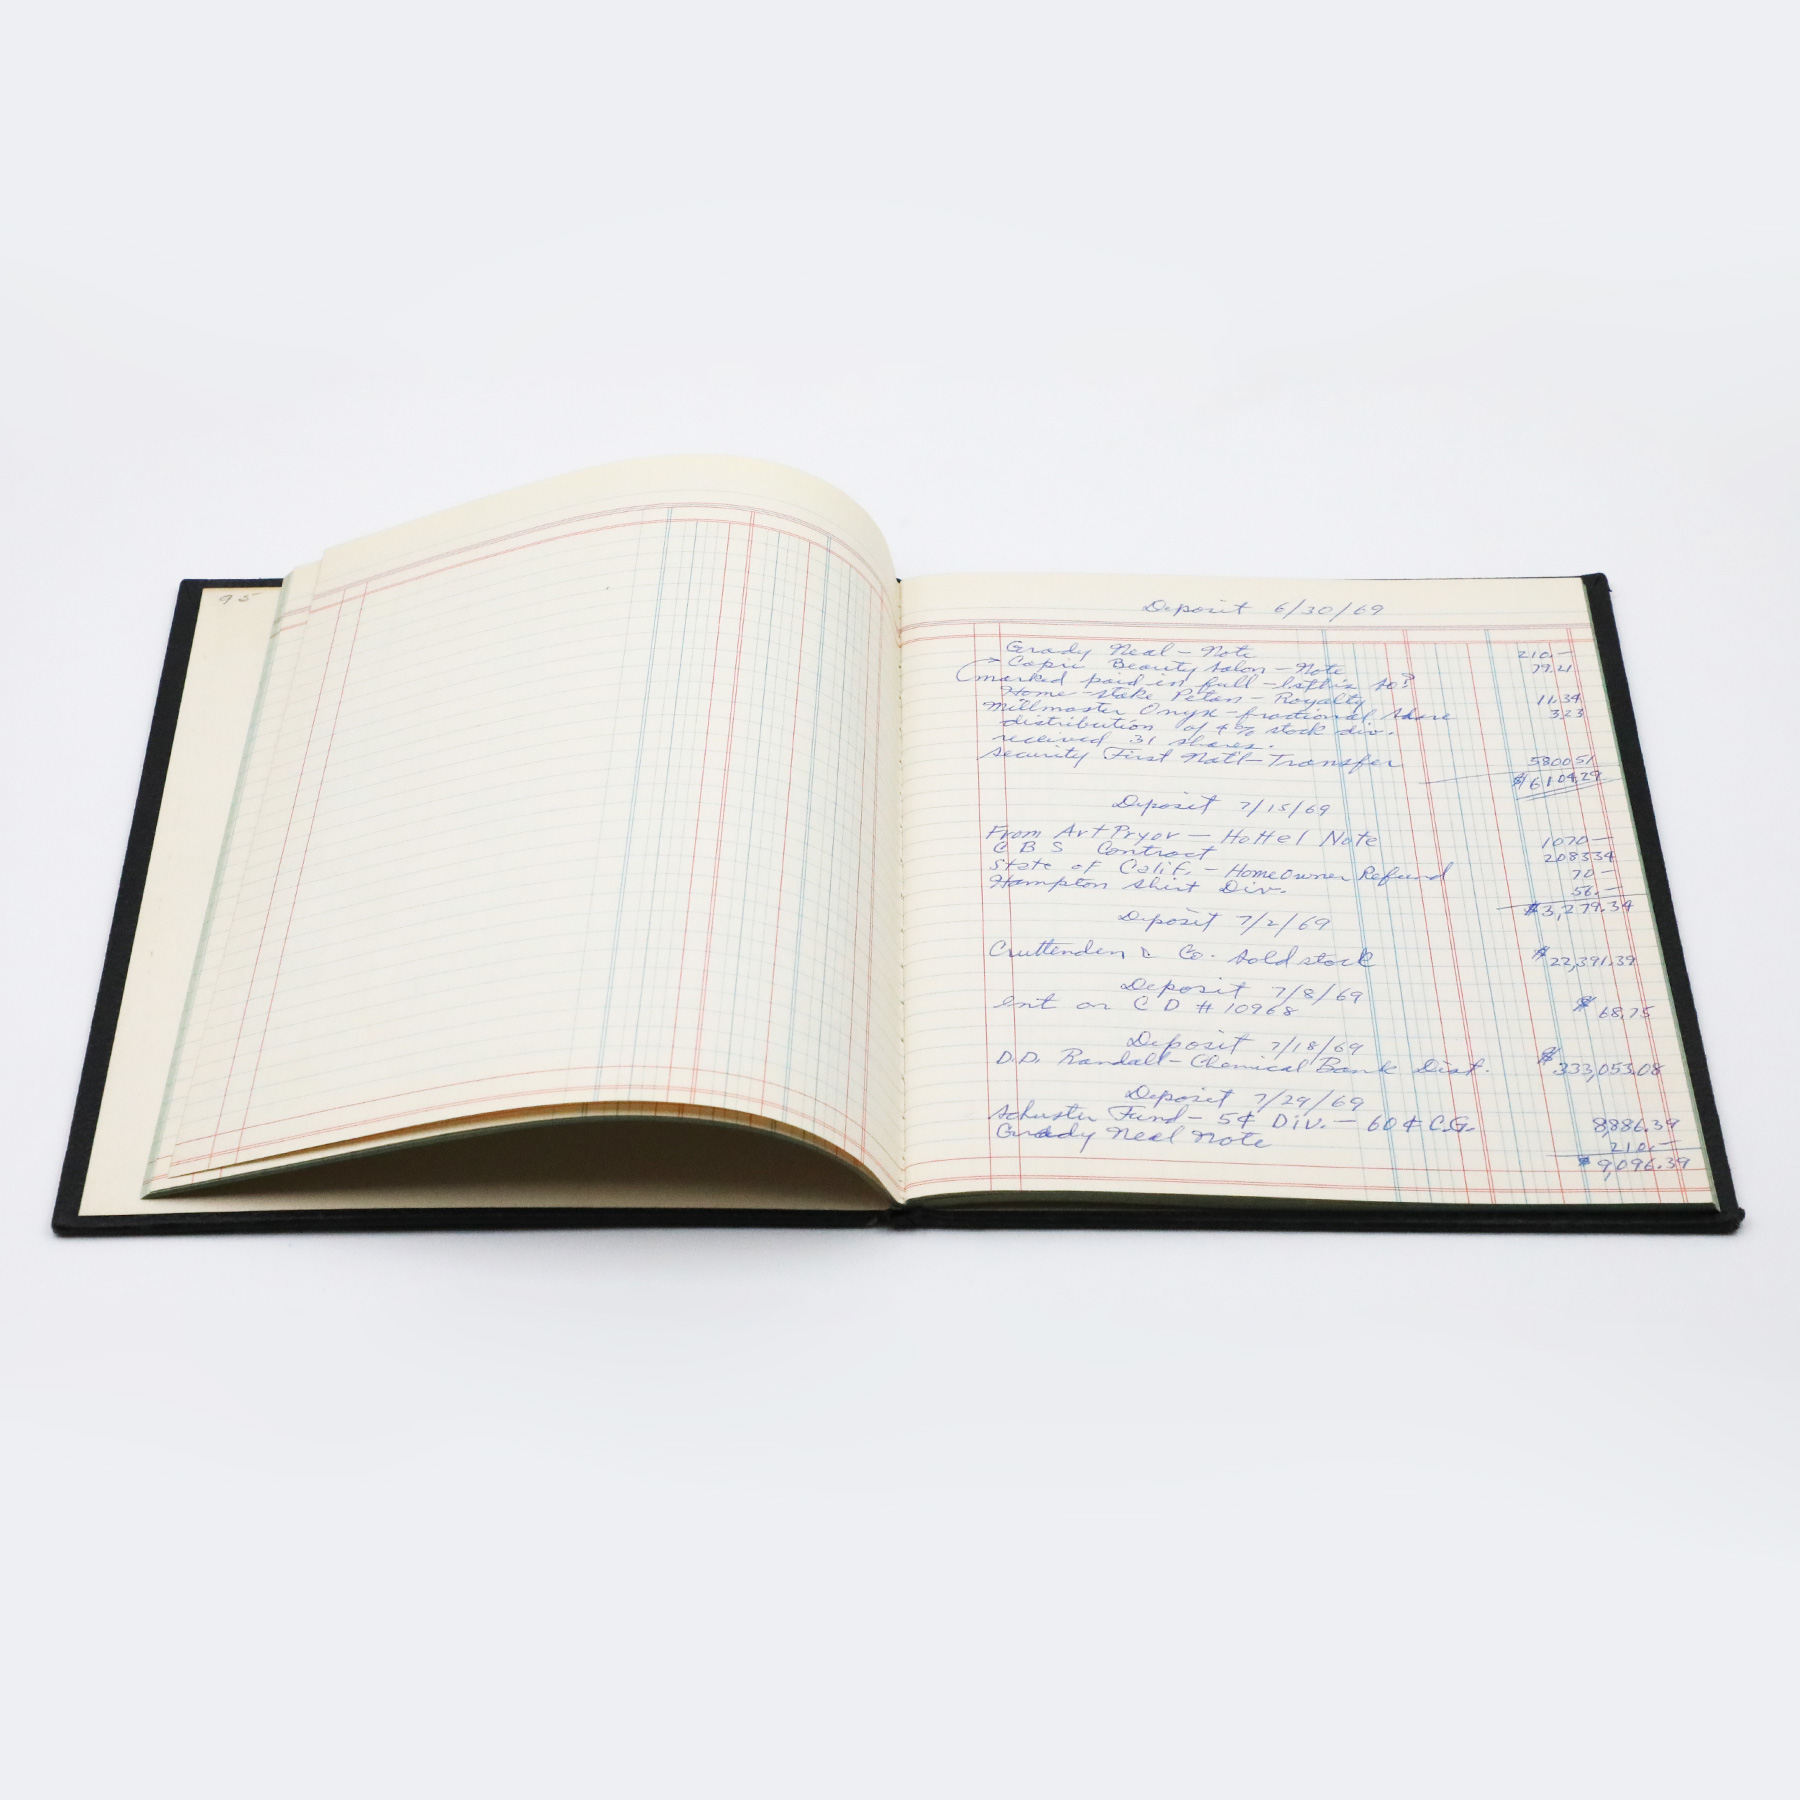 95
Deposit 6/30/69
Grady Neal - Note 210.-
Capri Beauty Salon - Note 79.21
(marked paid in full - Is this so?
Home-stake Petan - Royalty 11.34
Millmaster Onyx - fractional share 323
distribution of 4% stock div.
received 31 shares.
Security First Nat'l - Transfer 580051
$6104.29
Deposit 7/15/69
From Art Pryor - Hottel Note 1070-
C B S Contract 208334
State of Calif. - Homeowner Refund 70-
Hampton Shirt Div. 56.-
$3,279.34
Deposit 7/2/69
Cruttenden & Co. Sold stock $22,391.39
Deposit 7/8/69
Int on C D # 10968 $68.75
Deposit 7/18/69
D.D. Randall - Chemical Bank Dist. $333,053.08
Deposit 7/29/69
Schuster Fund - 5¢ Div. - 60¢ C.G. 8,886.39
Grady Neal Note 210.-
$9,096.39